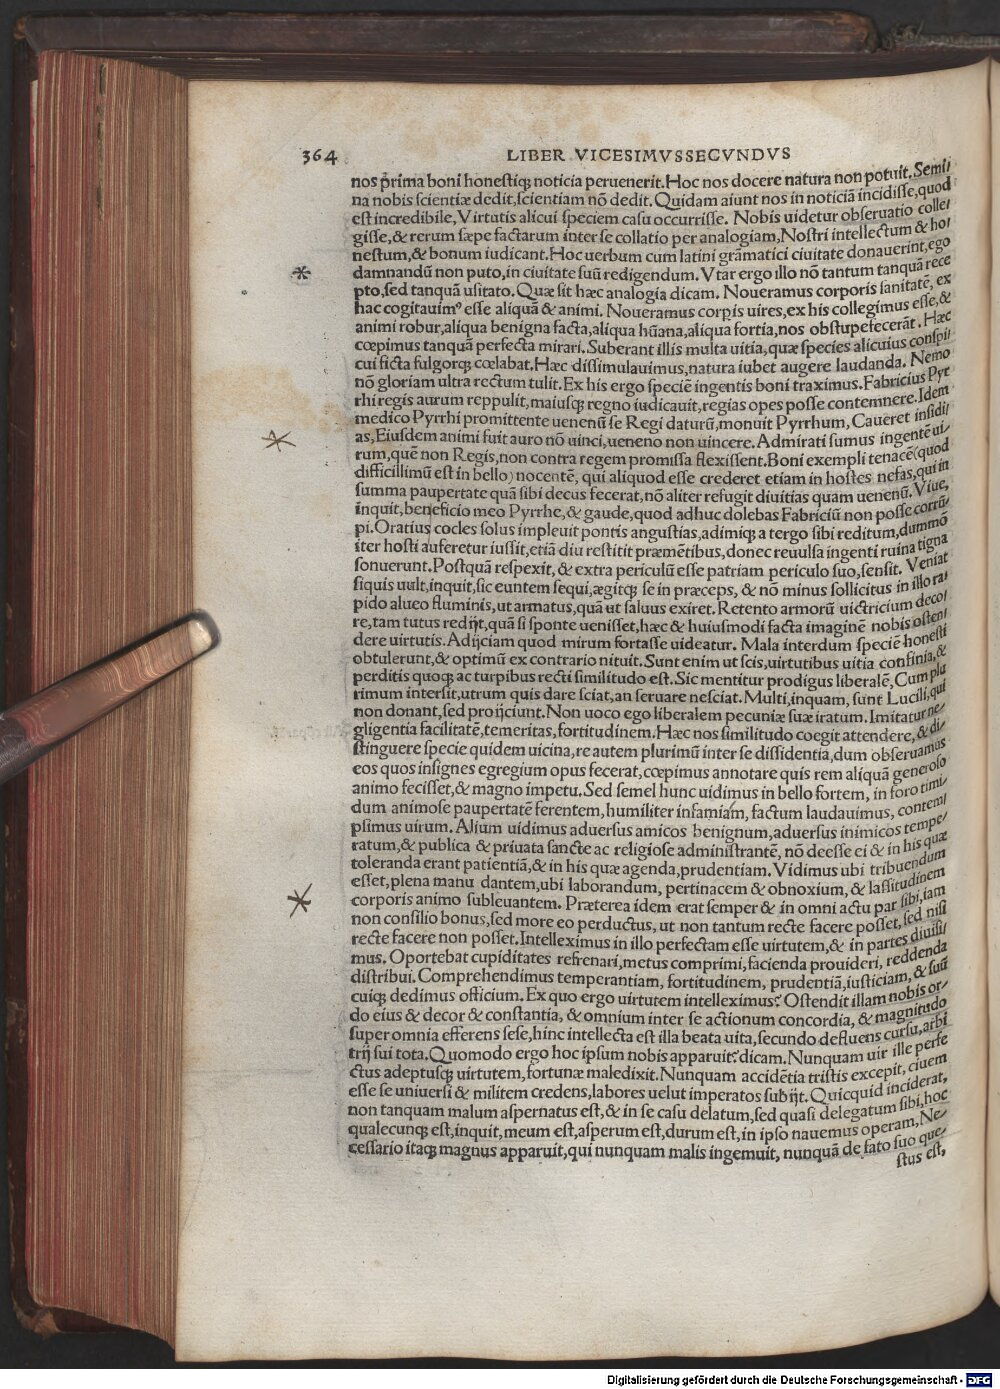 364 LIBER VICESIMVSSECVNDVS
nos prima boni honestiq; noticia peruenerit. Hoc nos docere natura non potuit. Semi/
na nobis scientiæ dedit, scientiam nō dedit. Quidam aiunt nos in noticiā incidisse, quod
est incredibile, Virtutis alicui speciem casu occurrisse. Nobis uidetur obseruatio colle/
gisse, & rerum sæpe factarum inter se collatio per analogiam, Nostri intellectum & ho/
nestum, & bonum iudicant. Hoc uerbum cum latini grāmatici ciuitate donauerint, ego
damnandū non puto, in ciuitatē suū redigendum. Vtar ergo illo nō tantum tanquā rece
pto, sed tanquā usitato. Quæ sit hæc analogia dicam. Noueramus corporis sanitatē, ex
hac cogitauimꝰ esse aliquā & animi. Noueramus corpis uires, ex his collegimus esse, &
animi robur, aliqua benigna facta, aliqua hūana, aliqua fortia, nos obstupefecerāt. Hæc
cœpimus tanquā perfecta mirari. Suberant illis multa uitia, quæ species alicuius conspi/
cui ficta fulgorq; cœlabat. Hæc dissimulauimus, natura iubet augere laudanda. Nemo
nō gloriam ultra rectum tulit. Ex his ergo speciē ingentis boni traximus. Fabricius Pyr
rhi regis aurum reppulit, maiusq; regno iudicauit, regias opes posse contemnere. Idem
medico Pyrrhi promittente uenenū se Regi daturū, monuit Pyrrhum, Caueret insidi/
as, Eiusdem animi fuit auro nō uinci, ueneno non uincere. Admirati sumus ingentē ui/
rum, quē non Regis, non contra regem promissa flexissent. Boni exempli tenacē (quod
difficillimū est in bello) nocentē, qui aliquod esse crederet etiam in hostes nefas, qui in
summa paupertate quā sibi decus fecerat, nō aliter refugit diuitias quam uenenū. Viue,
inquit, beneficio meo Pyrrhe, & gaude, quod adhuc dolebas Fabriciū non posse corrū/
pi. Oratius cocles solus impleuit pontis angustias, adimiq; a tergo sibi reditum, dummō
iter hosti auferetur iussit, etiā diu restitit præmētibus, donec reuulsa ingenti ruina tigna
sonuerunt. Postquā respexit, & extra periculū esse patriam periculo suo, sensit. Veniat
siquis uult, inquit, sic euntem sequi, ægitq; se in præceps, & nō minus sollicitus in illo ra/
pido alueo fluminis, ut armatus, quā ut saluus exiret. Retento armorū uictricium deco/
re, tam tutus redijt, quā si sponte uenisset, hæc & huiusmodi facta imaginē nobis osten/
dere uirtutis. Adijciam quod mirum fortasse uideatur. Mala interdum speciē honesti
obtulerunt, & optimū ex contrario nituit. Sunt enim ut scis, uirtutibus uitia confinia, &
perditis quoq; ac turpibus recti similitudo est. Sic mentitur prodigus liberalē, Cum plu
rimum intersit, utrum quis dare sciat, an seruare nesciat. Multi, inquam, sunt Lucili, qui
non donant, sed proijciunt. Non uoco ego liberalem pecuniæ suæ iratum. Imitatur ne/
gligentia facilitatē, temeritas, fortitudinem. Hæc nos similitudo coegit attendere, & di/
stinguere specie quidem uicina, re autem plurimū inter se dissidentia, dum obseruamus
eos quos insignes egregium opus fecerat, cœpimus annotare quis rem aliquā generoso
animo fecisset, & magno impetu. Sed semel hunc uidimus in bello fortem, in foro timi/
dum animose paupertatē ferentem, humiliter infamiam, factum laudauimus, contem/
psimus uirum. Alium uidimus aduersus amicos benignum, aduersus inimicos tempe/
ratum, & publica & priuata sancte ac religiose administrantē, nō deesse ei & in his quæ
toleranda erant patientiā, & in his quæ agenda, prudentiam. Vidimus ubi tribuendum
esset, plena manu dantem, ubi laborandum, pertinacem & obnoxium, & lassitudinem
corporis animo subleuantem. Præterea idem erat semper & in omni actu par sibi, iam
non consilio bonus, sed more eo perductus, ut non tantum recte facere posset, sed nisi
recte facere non posset. Intelleximus in illo perfectam esse uirtutem, & in partes diuisi/
mus. Oportebat cupiditates refrenari, metus comprimi, facienda prouideri, reddenda
distribui. Comprehendimus temperantiam, fortitudinem, prudentiā, iusticiam, & suū
cuiq; dedimus officium. Ex quo ergo uirtutem intelleximus? Ostendit illam nobis or/
do eius & decor & constantia, & omnium inter se actionum concordia, & magnitudo
super omnia efferens sese, hinc intellecta est illa beata uita, secundo defluens cursu, arbi
trij sui tota. Quomodo ergo hoc ipsum nobis apparuit? dicam. Nunquam uir ille perfe
ctus adeptusq; uirtutem, fortunæ maledixit. Nunquam accidētia tristis excepit, ciuem
esse se uniuersi & militem credens, labores uelut imperatos subijt. Quicquid inciderat,
non tanquam malum aspernatus est, & in se casu delatum, sed quasi delegatum sibi, hoc
qualecunq; est, inquit, meum est, asperum est, durum est, in ipso nauemus operam, Ne/
cessario itaq; magnus apparuit, qui nunquam malis ingemuit, nunquā de fato suo que/
stus est,
Digitalisierung gefördert durch die Deutsche Forschungsgemeinschaft - DFG